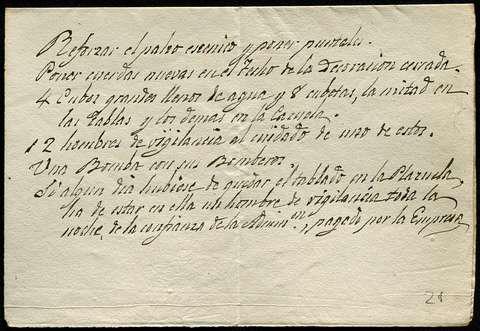 Reforzar el palco escenico y poner puntales.
Poner cuerdas nuevas en el Telo de la Decoracion cerrada.
4 Cubos grandes llenos de agua y 8 cubetas, la mitad en
las tablas y los demas en la Cazuela.
12 hombres de vigilancia al cuidado de uno de estos.
Una Bomba con sus Bomberos.
Si algun dia hubiese de quedar el tablado en la Plazuela,
ha de estar en ella un hombre de vigilancia toda la
noche, de la confianza de la Admin.on, pagado por la Empresa
28